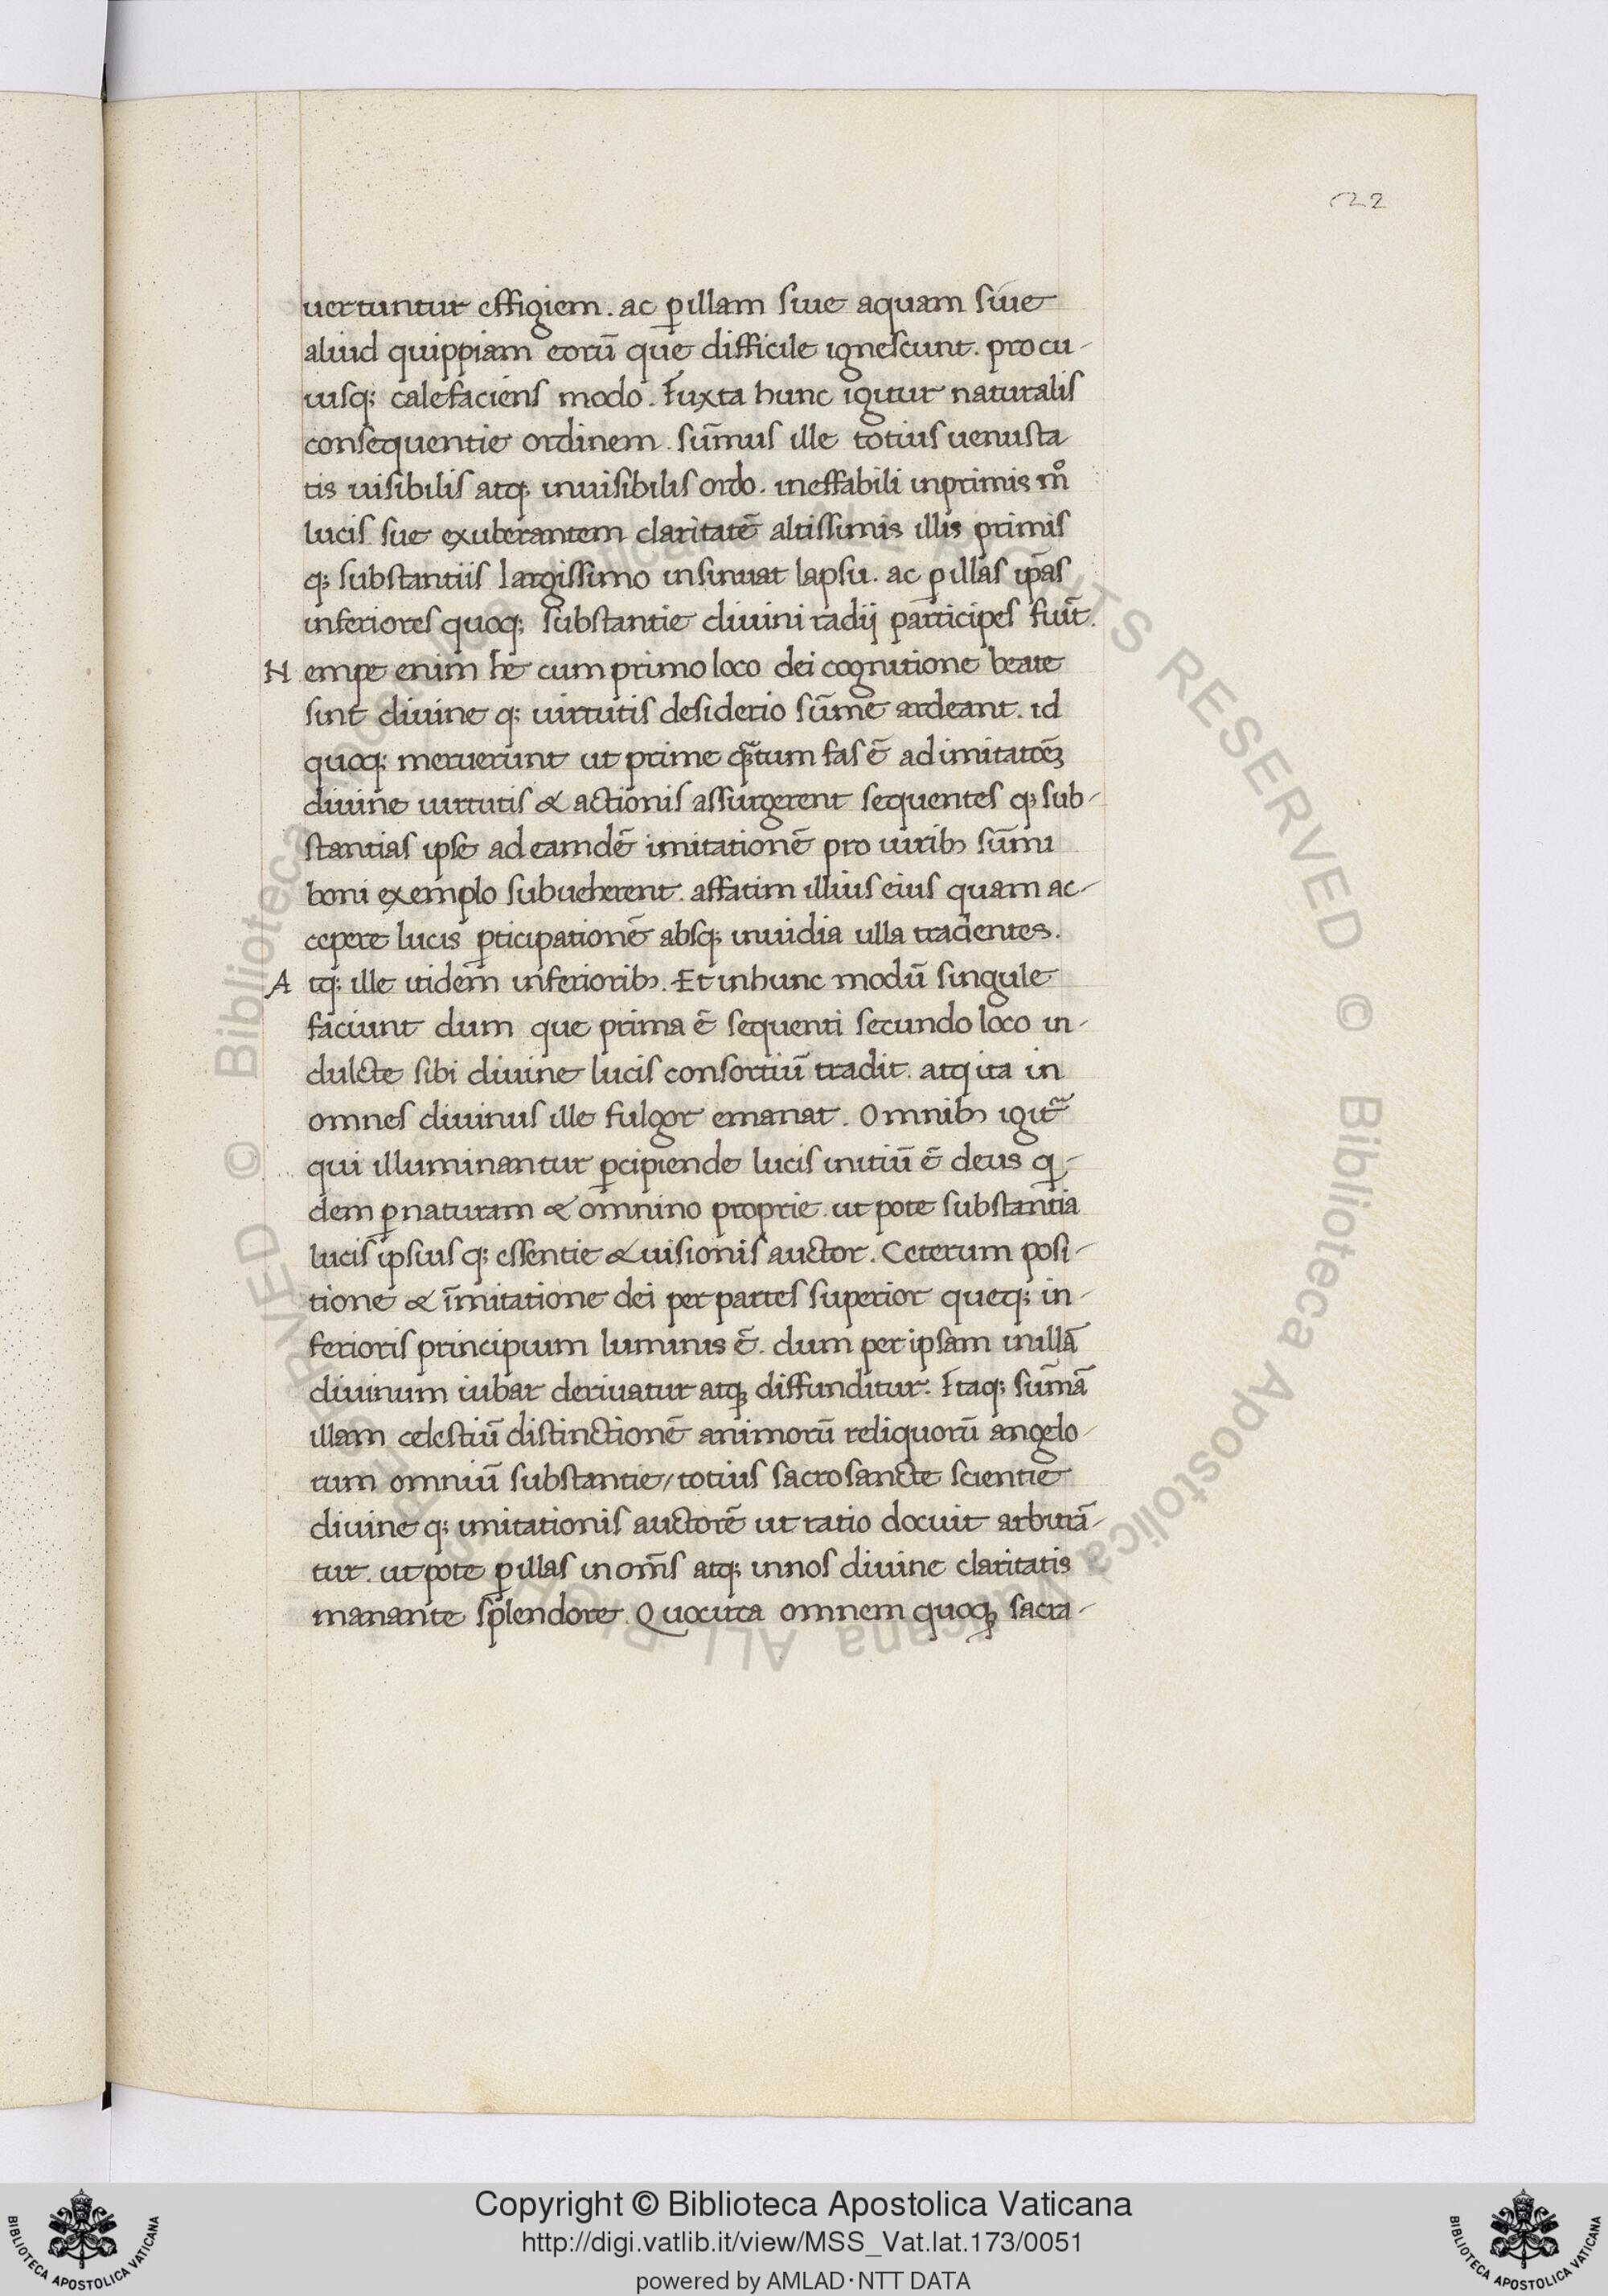 22
uertuntur effigiem. ac ꝑ illam siue aquam siue
aliud quippiam eorū que difficile ignescunt. pro cu-
uisq; calefaciens modo. Iuxta hunc igitur naturalis
consequentie ordinem. sūmus ille totius uenusta
tis uisibilis atq; inuisibilis ordo. ineffabili inprimis mͦ
lucis sue exuberantem claritatē altissimis illis primis
q; substantiis largissimo insinuat lapsu. ac ꝑ illas ip̄as
inferiores quoq; substantie diuini radij participes fiūt.
Nempe enim he cum primo loco dei cognitione beate
sint diuine q; uirtutis desiderio sūme ardeant. id
quoq; meruerunt ut prime q̃tum fas ē ad imitatōeꝫ
diuine uirtutis & actionis assurgerent sequentes q; sub-
stantias ipse ad eamdē imitationē pro uirib; sūmi
boni exemplo subueherent. affatim illius eius quam ac-
cepere lucis ꝑticipationē absq; inuidia ulla tradentes.
Atq; ille itidem inferiorib;. Et in hunc modū singule
faciunt dum que prima ē sequenti secundo loco in-
dulcte sibi diuine lucis consortiū tradit. atq ita in
omnes diuinus ille fulgor emanat. Omnib; igit᷑
qui illuminantur ꝑcipiende lucis initiū ē deus q-
dem ꝑ naturam & omnino proprie. ut pote substantia
lucis ipsius q; essentie & uisionis auctor. Ceterum posi-
tione & īmitatione dei per partes superior queq; in-
ferioris principium luminis ē. dum per ipsam in illā
diuinum iubar deriuatur atq; diffunditur. Itaq; sūmā
illam celestiū distinctionē animorū reliquorū angelo-
rum omniū substantie/ totius sacrosancte scientie
diuine q; imitationis auctorē ut ratio docuit arbitrā-
tur. ut pote ꝑ illas in om̄s atq; in nos diuine claritatis
manante splendore. Quocirca omnem quoq; sacra-
© Biblioteca Apostolica Vaticana ALL RIGHTS RESERVED
Copyright © Biblioteca Apostolica Vaticana
http://digi.vatlib.it/view/MSS_Vat.lat.173/0051
powered by AMLAD·NTT DATA
BIBLIOTECA APOSTOLICA VATICANA
BIBLIOTECA APOSTOLICA VATICANA